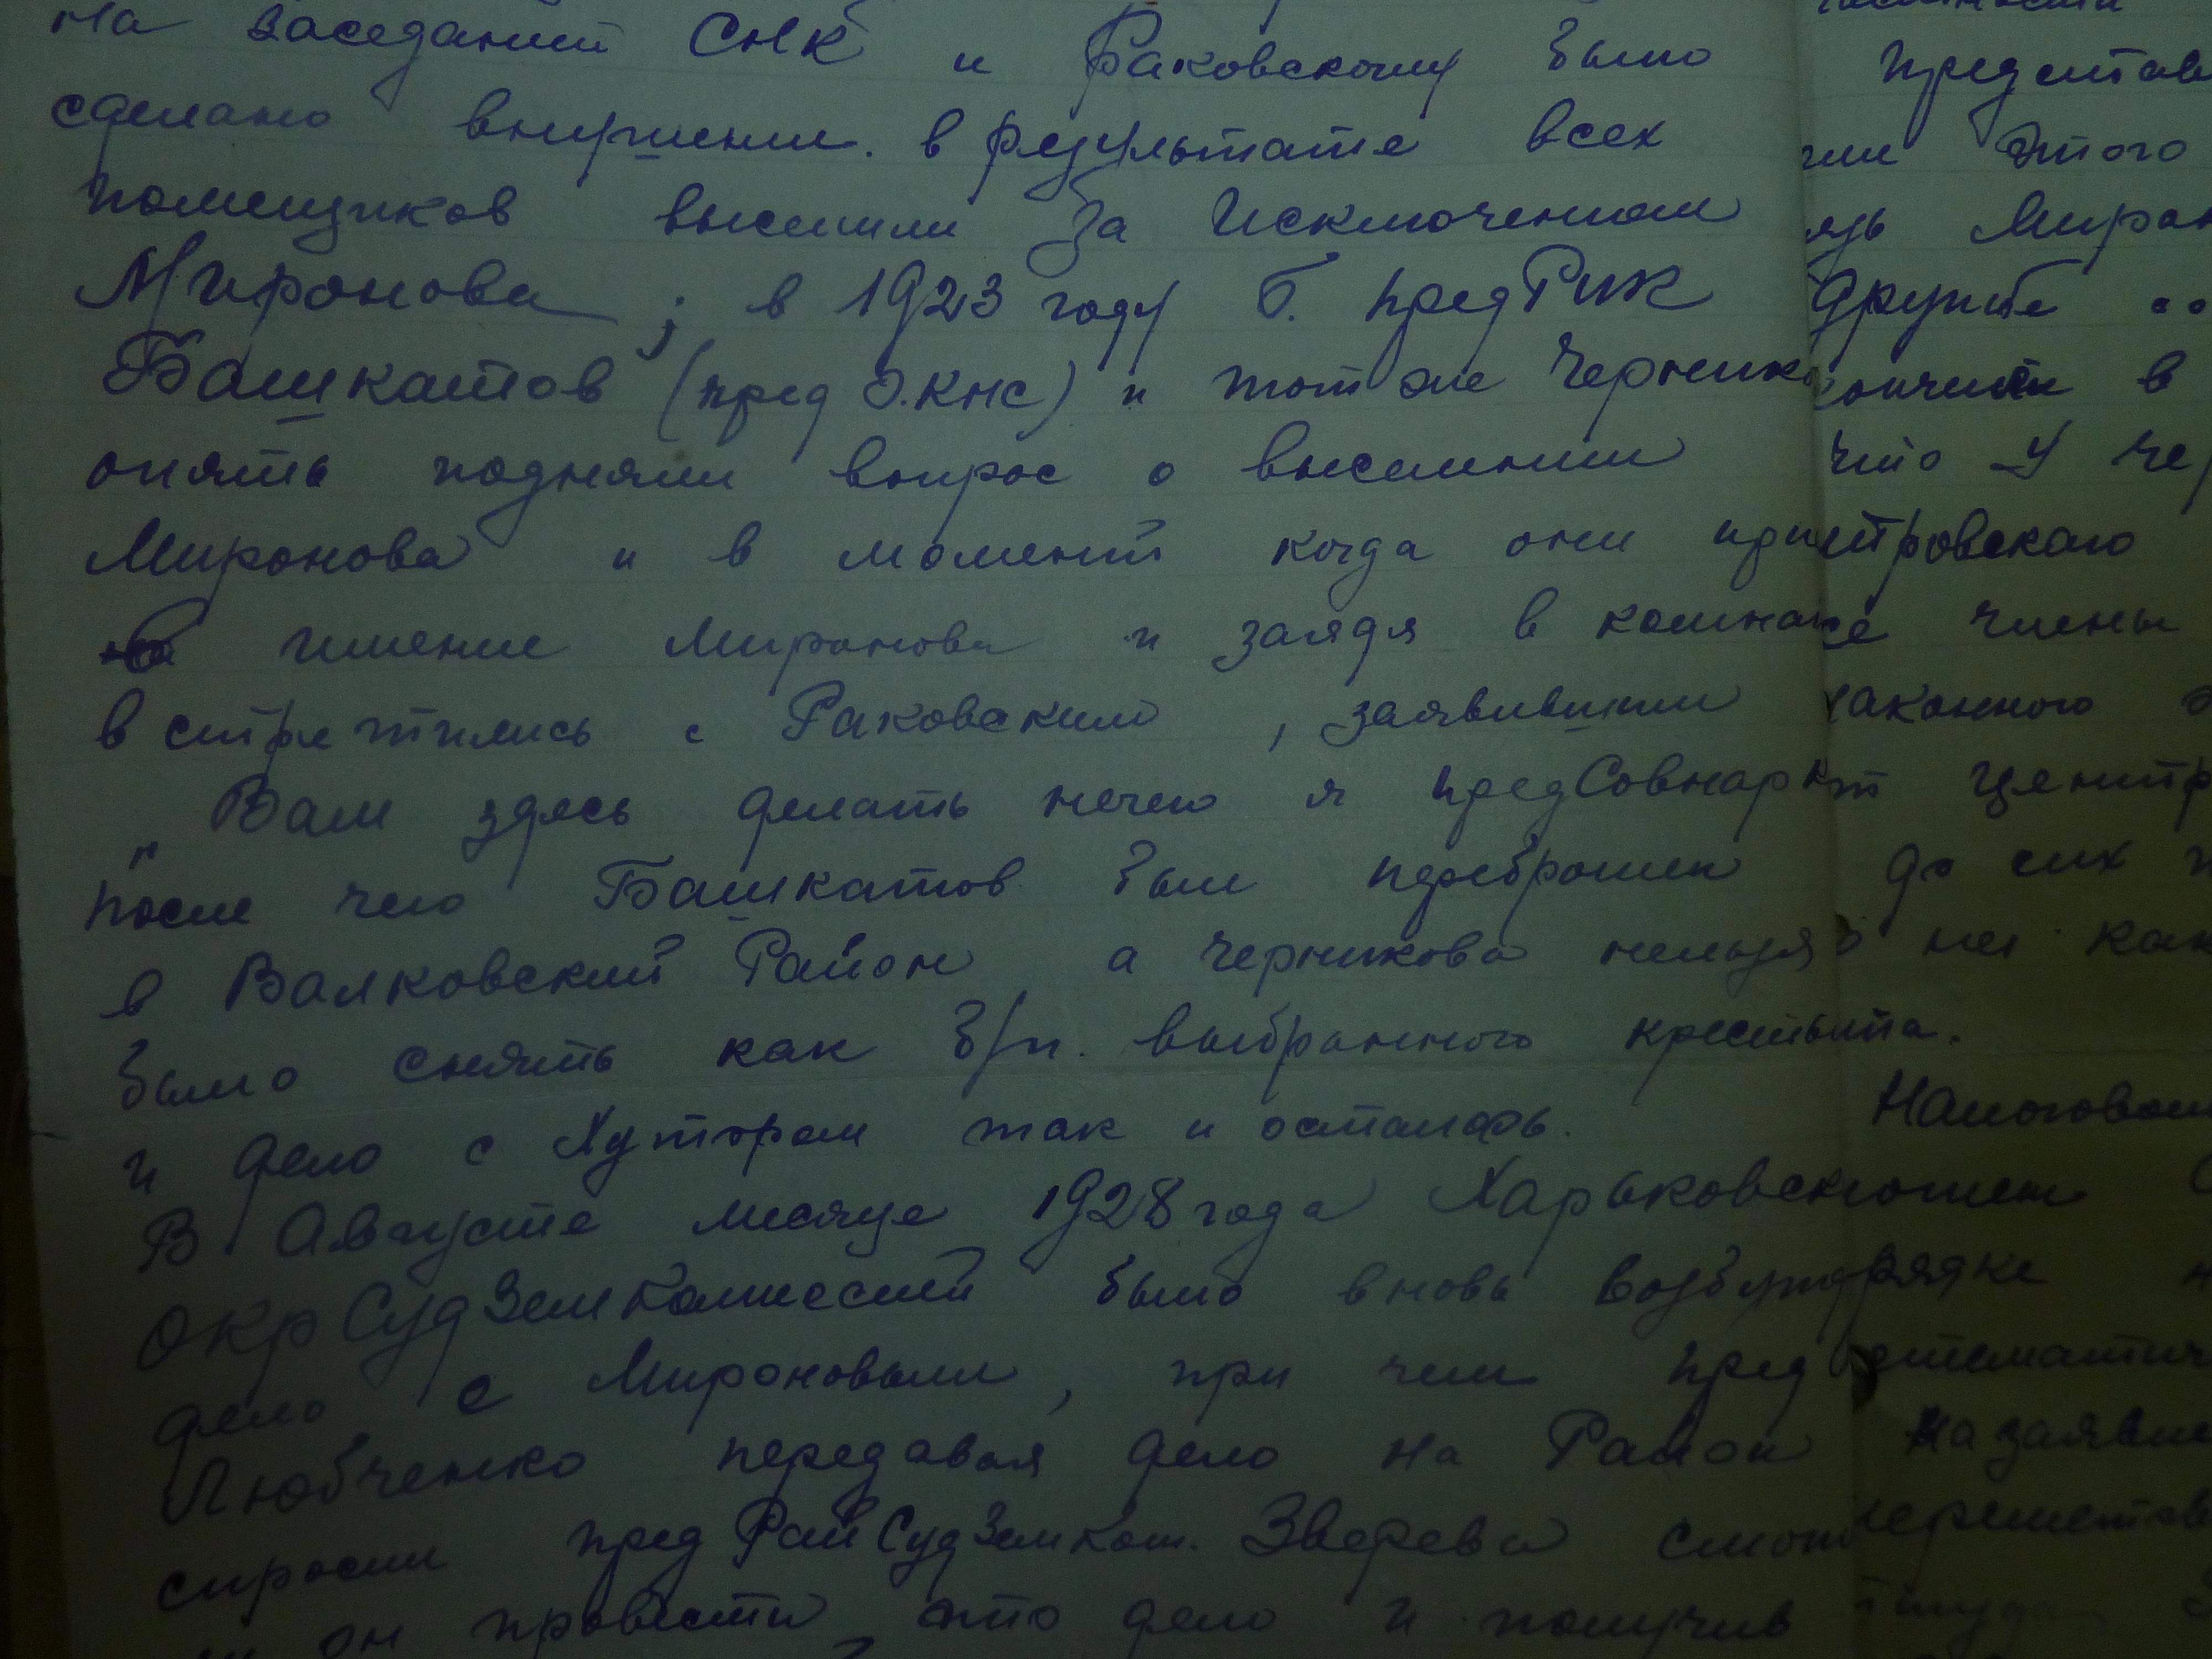 на заседании СНК и Раковскому было
сделано внушение. в результате всех
помещиков выселили за исключением
Миронова; в 1923 году б. предРик
Башкатов (пред О.КНС) и тот же Черник
опять подняли вопрос о выселении
Миронова и в момент когда они
имение Миронова и зайдя в комна
встретились с Раковским, заявившим
"Вам здесь делать нечего я предСовнарк
после чего Башкатов был переброшен
в Валковский Район а Черникова нельзя
было снять как б/п. выбранного
и дело с Хутором так и осталось.
В Августе месяце 1928 года Харьковск
ОкрСудЗемКомиссией было вновь возбужд
дело с Мироновым, при чем пред
Любченко передавая дело на Район
спросил предРайСудЗемКом. Зверева смож
он провести это дело и получив
представ
этого
Мирон
дружбе со
в
что у Чер
тровскаго
члены
законного
центр
до сих п
не как
крестьянина.
Налогов
рядке
стематич
на заявле